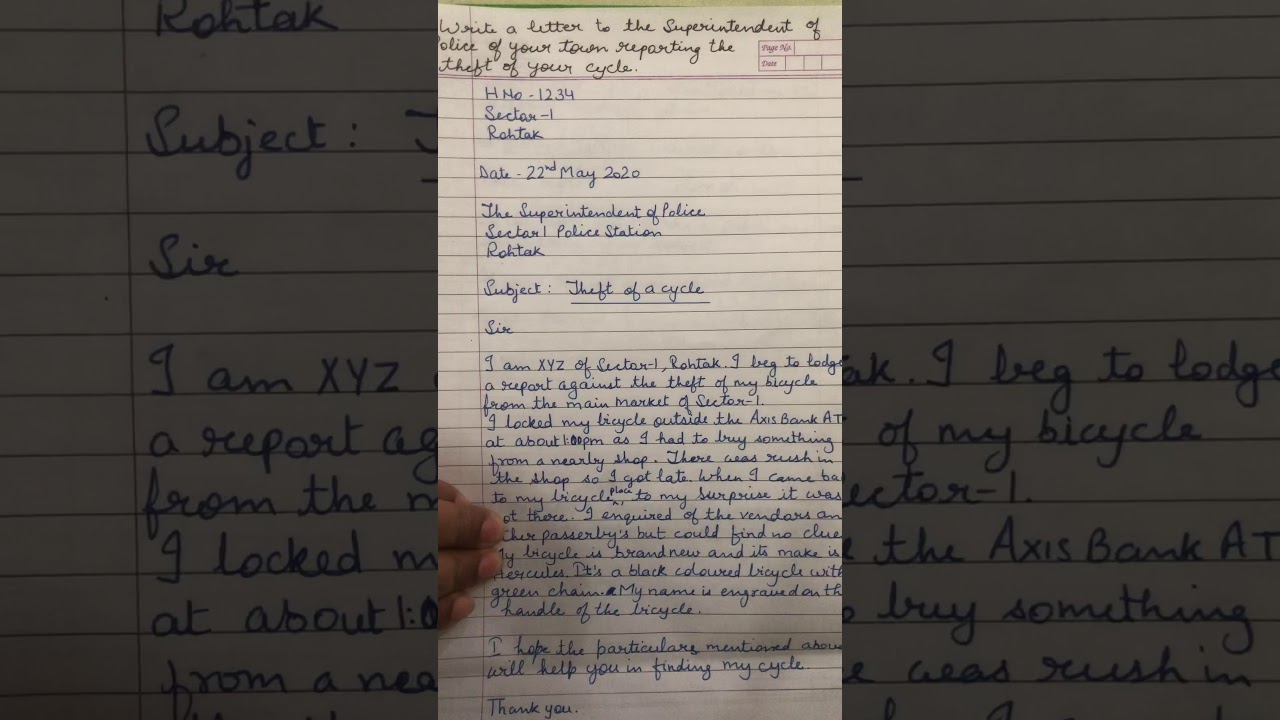 Write a letter to the Superintendent of
olice of your town reporting the
theft of your cycle.
Page No.
Date
H No - 1234
Sector-1
Rohtak
Date - 22nd May 2020
The Superintendent of Police
Sector 1 Police Station
Rohtak
Subject : Theft of a cycle
Sir
I am XYZ of Sector-1, Rohtak. I beg to lodge
a report against the theft of my bicycle
from the main market of Sector-1.
I locked my bicycle outside the Axis Bank AT
at about 1:00pm as I had to buy something
from a nearby shop. There was rush in
the shop so I got late. When I came ba
to my bicycle place, to my surprise it was
ot there. I enquired of the vendors an
ther passerby's but could find no clue
My bicycle is brand new and its make is
Hercules. It's a black coloured bicycle with
green chain. My name is engraved on th
handle of the bicycle.
I hope the particulars mentioned above
will help you in finding my cycle.
Thank you.